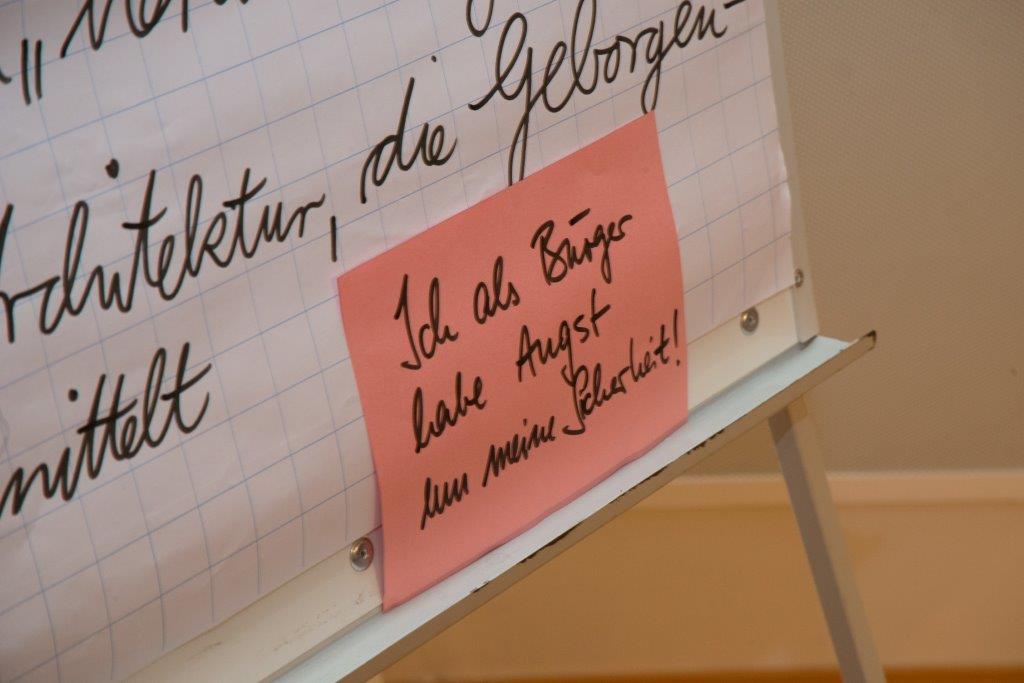 Architektur, die Geborgen-
mittelt
Ich als Bürger
habe Angst
um meine Sicherheit!